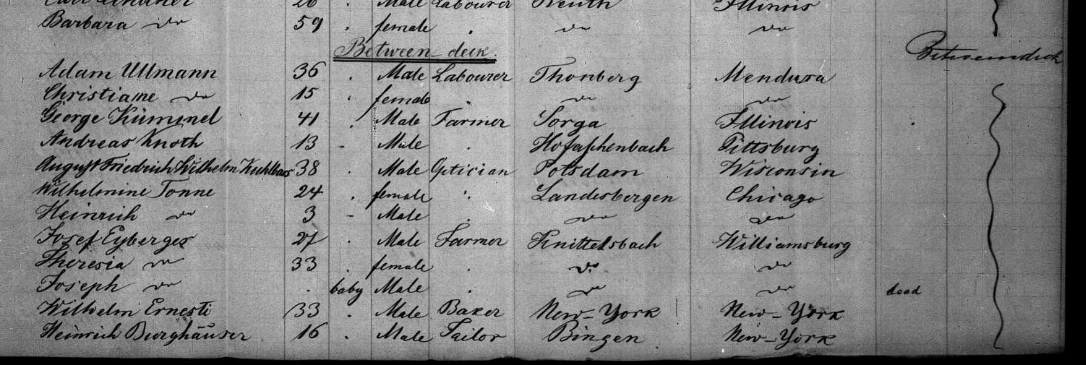 Carl Lindner 26 Male Labourer Reuth Illinois
Barbara do 59 female . do do
Between deck Betweendeck
Adam Ullmann 36 . Male Labourer Thonberg Mendura
Christiane do 15 female . do do
George Kümmel 41 . Male Farmer Sorga Illinois
Andreas Knoth 13 - Male . Hofaschenbach Pittsburg
August Friedrich Wilhelm 38 . Male Optician Potsdam Wisconsin
Wilhelmine Tonne 24 . female . Landesbergen Chicago
Heinrich do 3 - Male do do
Josef Eyberger 27 . Male Farmer Knittelsbach Williamsburg
Theresia do 33 . female . do do
Joseph do . baby Male . do do dead
Wilhelm Ernesti 33 . Male Baker New-York New-York
Heinrich Burghäuser 16 . Male Tailor Bingen New-York